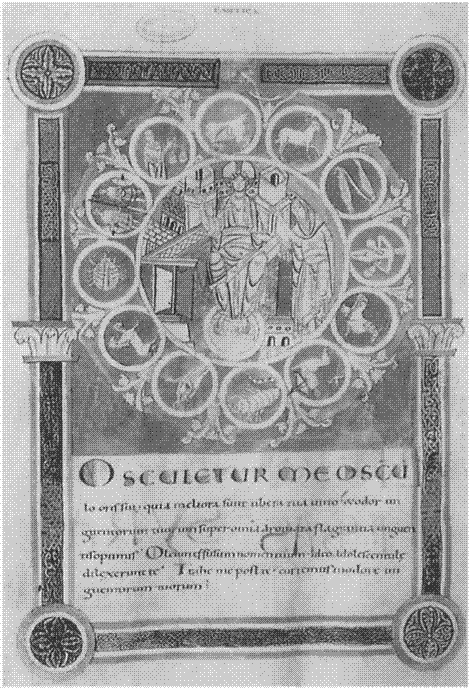 OSCULETUR ME OSCU
lo oris sui; quia meliora sunt ubera tua uino odor un
guentorum tuorum super omia aromata flagrantia unguen
tis optimis Oleum effusum nomen tuum Ideo adolescentule
dilexerunt te Trahe me post te curremus in odore un
guentorum tuorum